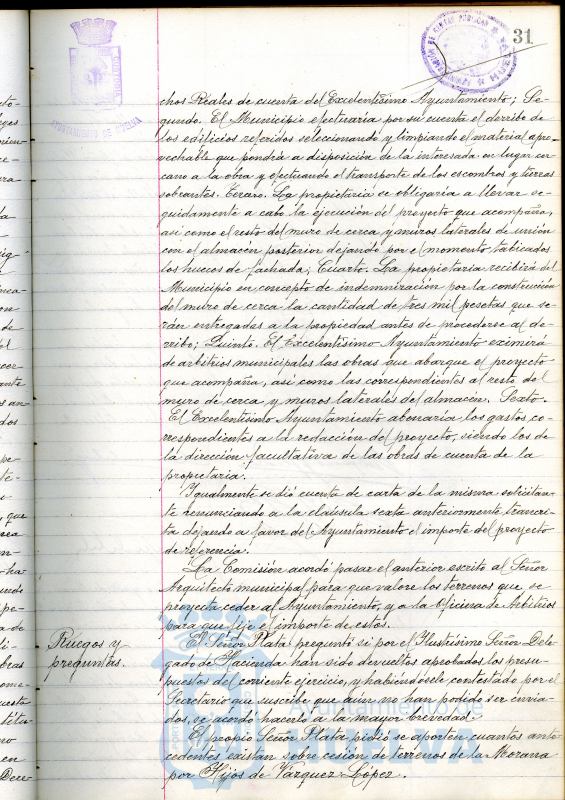 31
AYUNTAMIENTO DE HUELVA
chos Reales de cuenta del Excelentísimo Ayuntamiento; Se-
gundo. El Municipio efectuaría por su cuenta el derribo de
los edificios referidos seleccionando y limpiando el material apro-
vechable que pondrá a disposición de la interesada en lugar cer-
cano a la obra y efectuando el transporte de los escombros y tierras
sobrantes. Tercero. La propietaria se obligaría a llevar se-
guidamente a cabo la ejecución del proyecto que acompaña,
así como el resto del muro de cerca y muros laterales de unión
con el almacén posterior dejando por el momento tabicados
los huecos de fachada; Cuarto. La propietaria recibirá del
Municipio en concepto de indemnización por la construcción
del muro de cerca la cantidad de tres mil pesetas que se-
rán entregadas a la propiedad antes de procederse al de-
rribo; Quinto. El Excelentísimo Ayuntamiento eximirá
de arbitrios municipales las obras que abarque el proyecto
que acompaña, así como las correspondientes al resto del
muro de cerca y muros laterales del almacén. Sexto.
El Excelentísimo Ayuntamiento abonaría los gastos co-
rrespondientes a la redacción del proyecto, siendo los de
la dirección facultativa de las obras de cuenta de la
propietaria.
Igualmente se dió cuenta de carta de la misma solicitan-
te renunciando a la cláusula sexta anteriormente transcri-
ta dejando a favor del Ayuntamiento el importe del proyecto
de referencia.
La Comisión acordó pasar el anterior escrito al Señor
Arquitecto municipal para que valore los terrenos que se
proyecta ceder al Ayuntamiento, y a la Oficina de Arbitrios
para que fije el importe de estos.
Ruegos y
preguntas.
El Señor Plata preguntó si por el Ilustrísimo Señor Dele-
gado de Hacienda han sido devueltos aprobados los presu-
puestos del corriente ejercicio, y habiéndosele contestado por el
Secretario que suscribe que aún no han podido ser envia-
dos, se acordó hacerlo a la mayor brevedad.
El propio Señor Plata pidió se aporten cuantos ante-
cedentes existan sobre cesión de terrenos de la Morana
por Hijos de Vázquez López.
Ayuntamiento de
HUELVA